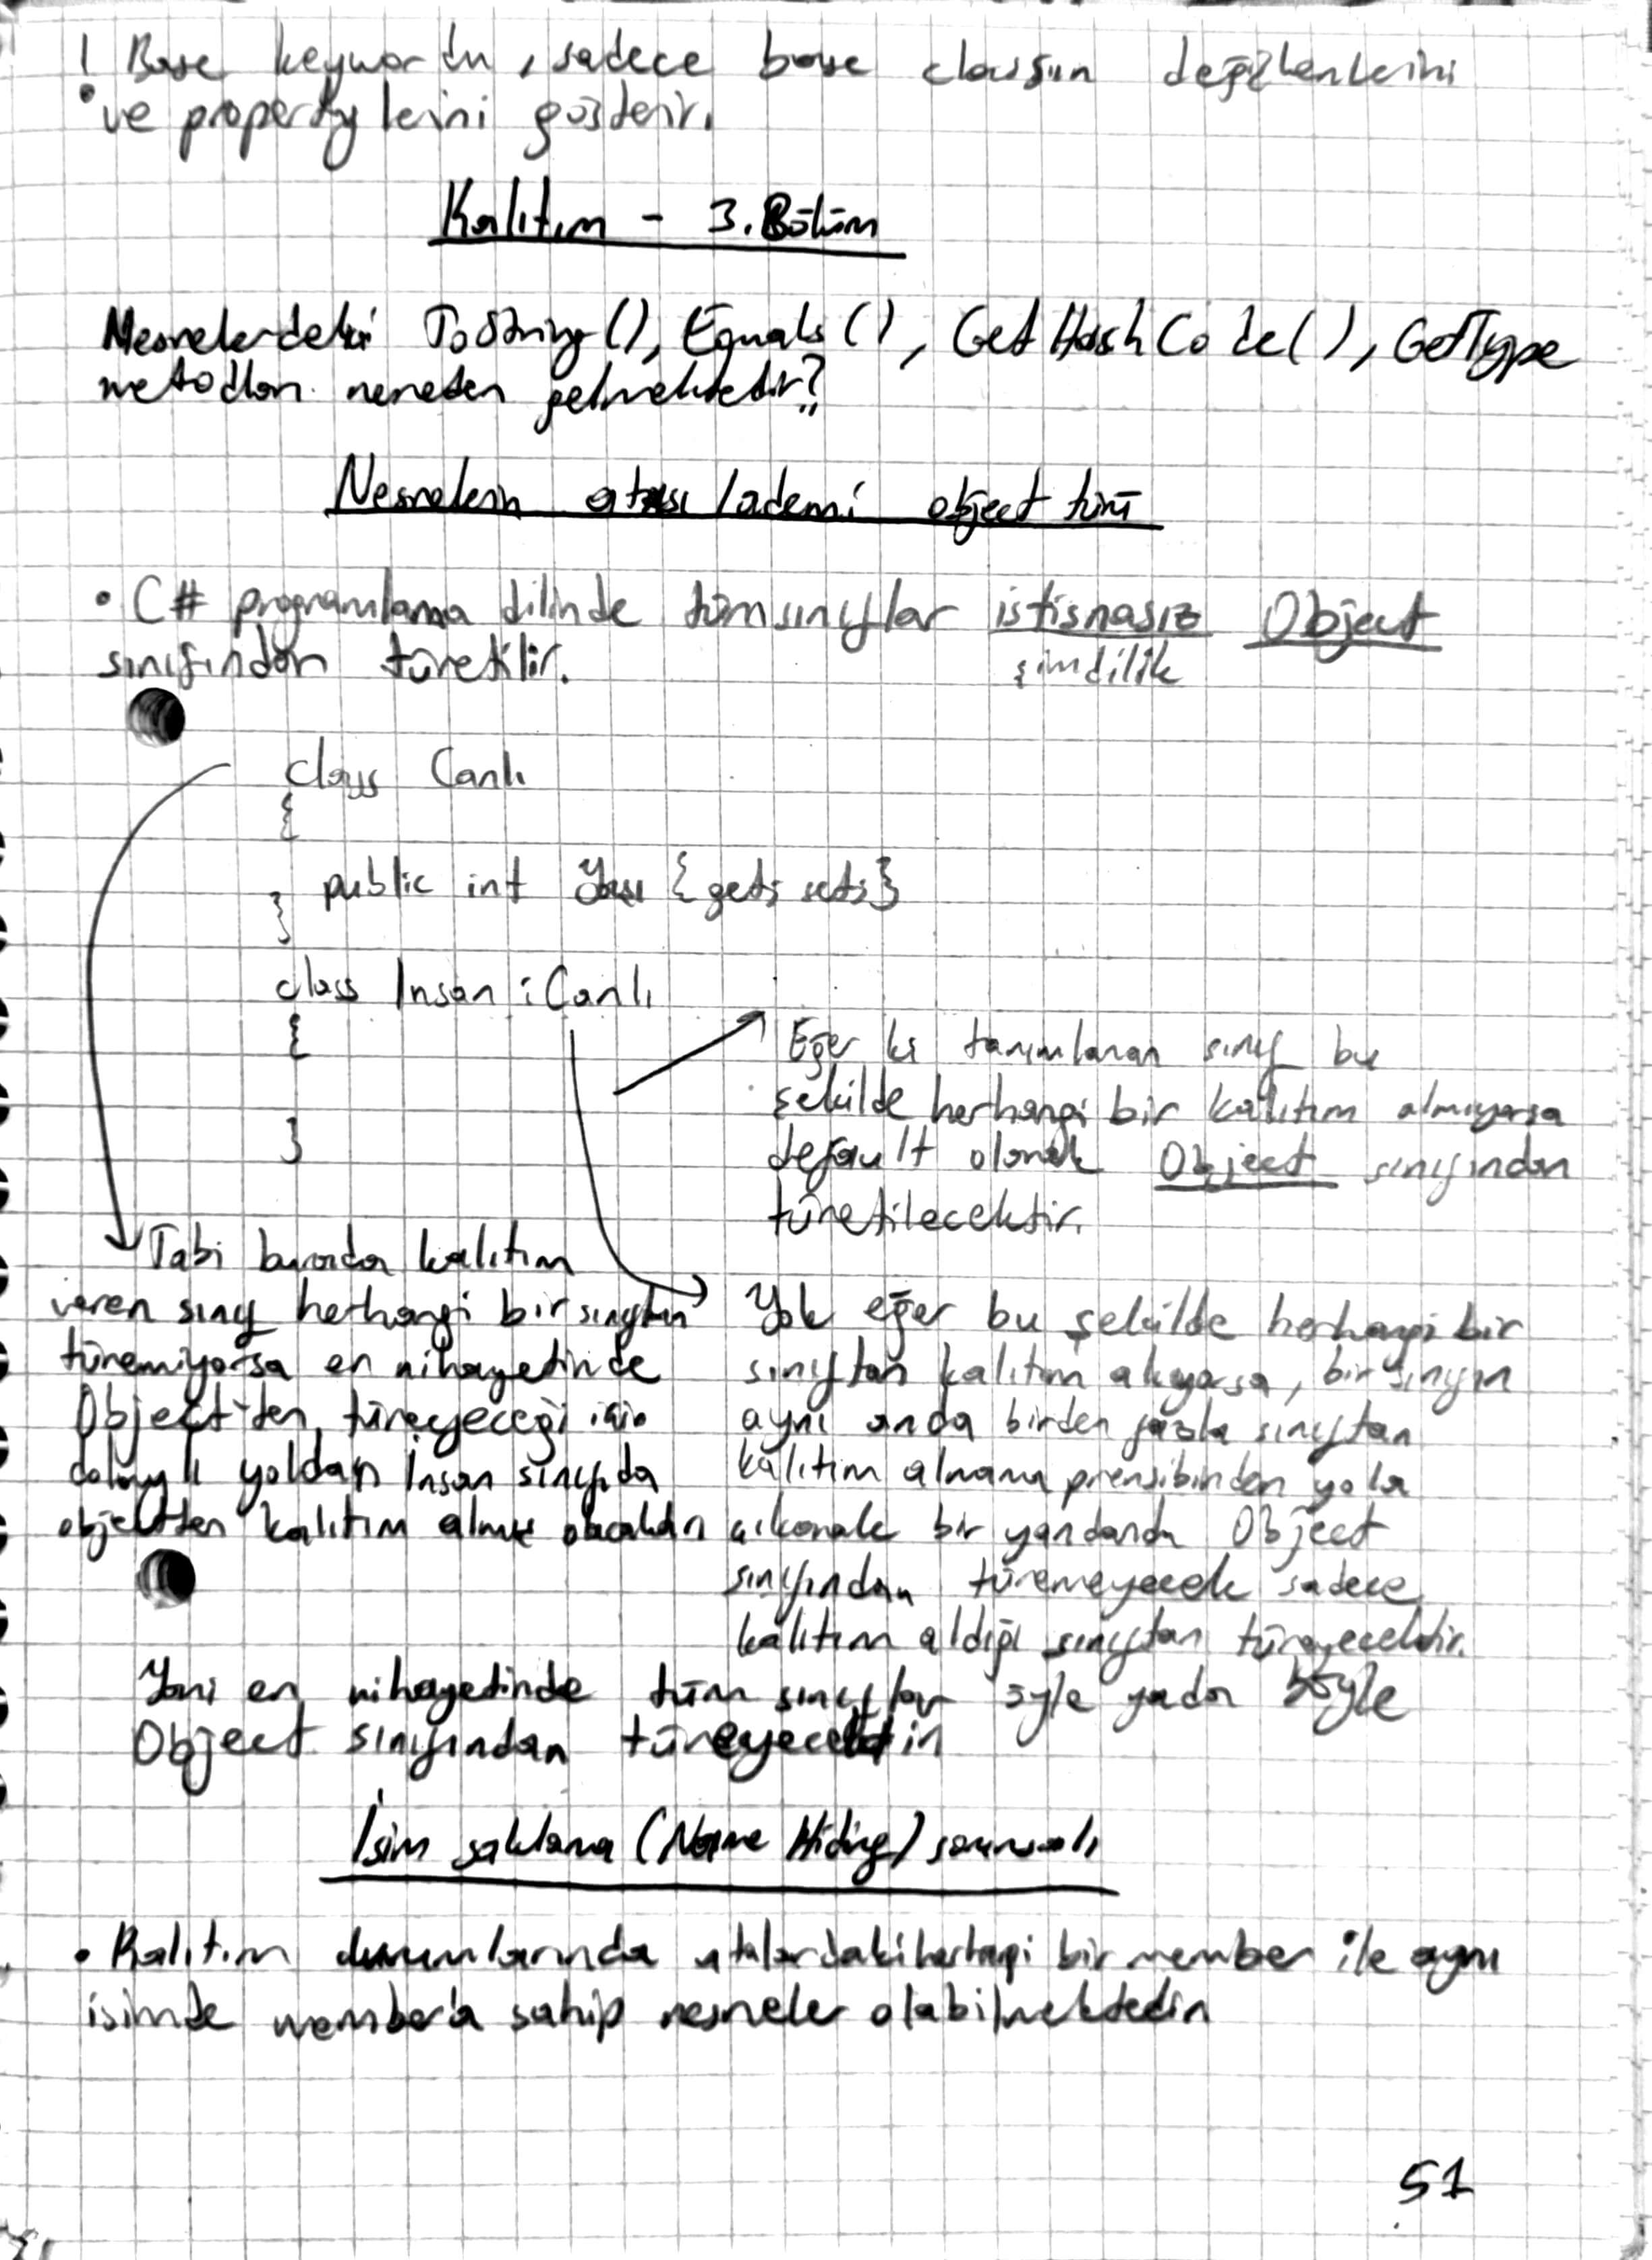 ! Base keywordu, sadece base classın değişkenlerini
ve propertylerini gösterir.
Kalıtım - 3. Bölüm
Nesnelerdeki ToString(), Equals(), GetHashCode(), GetType
metodları nereden gelmektedir?
Nesnelerin atası / ademi object türü
• C# programlama dilinde tüm sınıflar istisnasız Object
şimdilik
sınıfından türetilir.
class Canlı
{
public int Yası {get; set;}
}
class Insan : Canlı
{
}
Eğer ki tanımlanan sınıf bu
şekilde herhangi bir kalıtım almıyorsa
default olarak Object sınıfından
türetilecektir.
Tabi burada kalıtım
veren sınıf herhangi bir sınıftan
türemiyorsa en nihayetinde
Object'ten türeyeceği için
dolaylı yoldan İnsan sınıfıda
objectten kalıtım almış olacaktır
Yok eğer bu şekilde herhangi bir
sınıftan kalıtım alıyorsa, bir sınıfın
aynı anda birden fazla sınıftan
kalıtım almama prensibinden yola
çıkarak bir yandanda Object
sınıfından türemeyecek sadece
kalıtım aldığı sınıftan türeyecektir.
Yani en nihayetinde tüm sınıflar öyle yada böyle
Object sınıfından türeyecektir
İsim saklama (Name Hiding) sorunsalı
• Kalıtım durumlarında atalardaki herhangi bir member ile aynı
isimde member'a sahip nesneler olabilmektedir
51